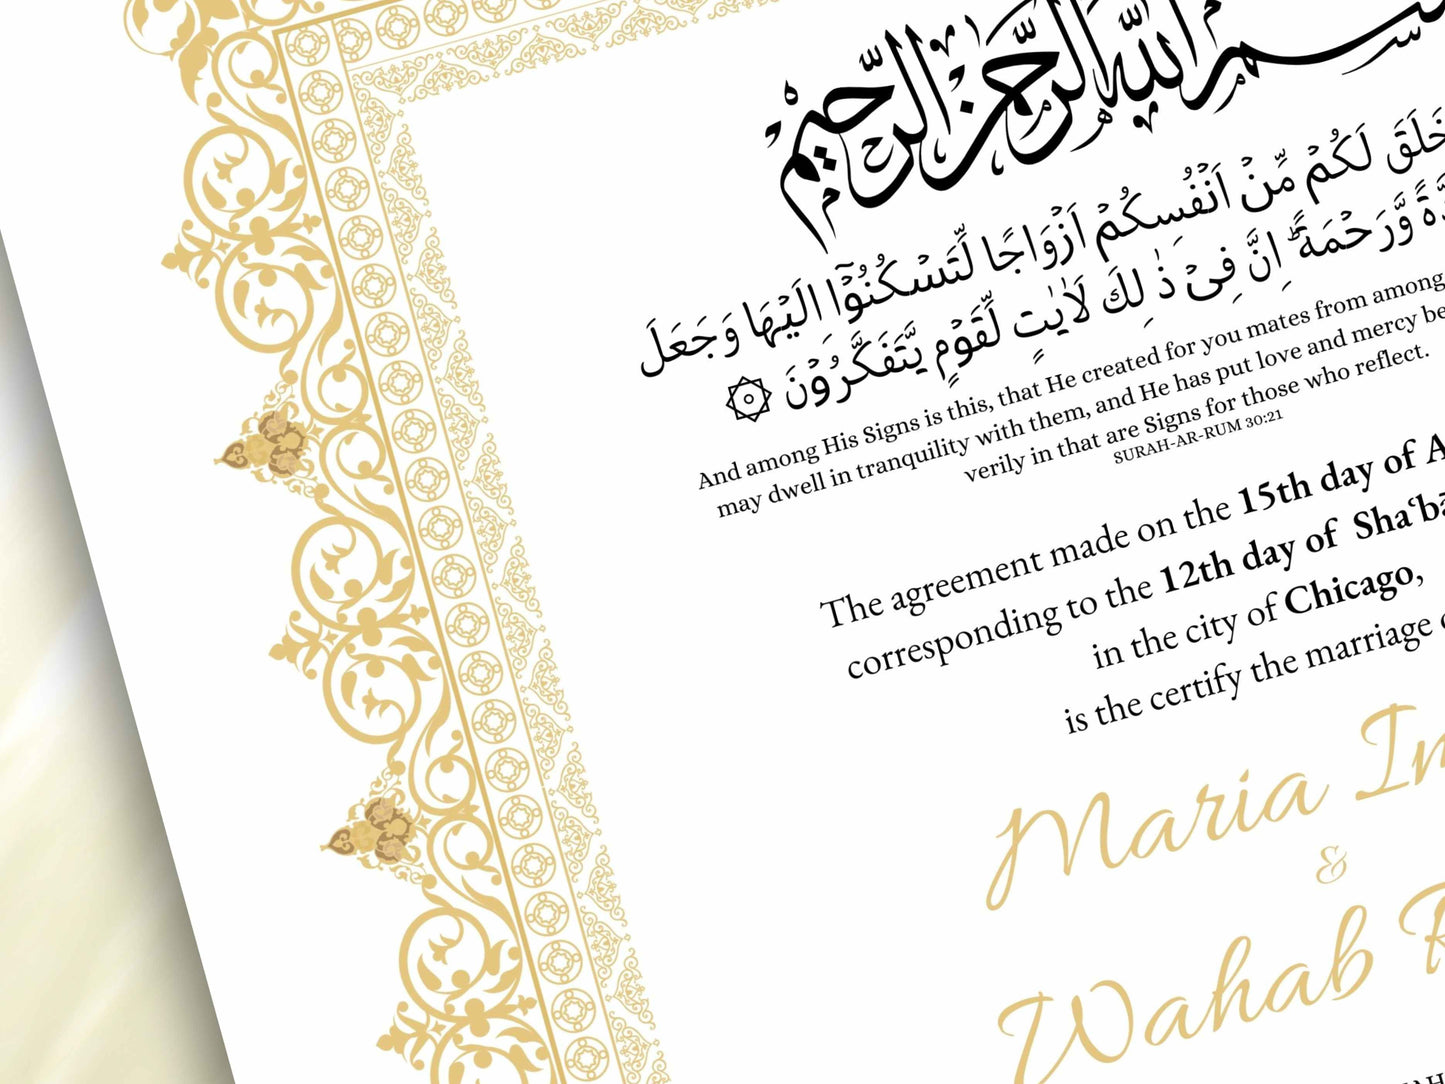 بسم الله الرحمن الرحيم
خَلَقَ لَكُمۡ مِّنۡ اَنۡفُسِكُمۡ اَزۡوَاجًا لِّتَسۡكُنُوۡۤا اِلَيۡهَا وَجَعَلَ
وَّرَحۡمَةً ؕ اِنَّ فِىۡ ذٰ لِكَ لَاٰيٰتٍ لِّقَوۡمٍ يَّتَفَكَّرُوۡنَ ۞
And among His Signs is this, that He created for you mates from among
may dwell in tranquility with them, and He has put love and mercy be
verily in that are Signs for those who reflect.
SURAH-AR-RUM 30:21
The agreement made on the 15th day of A
corresponding to the 12th day of Shaʿb
in the city of Chicago,
is the certify the marriage
Maria
&
Wahab